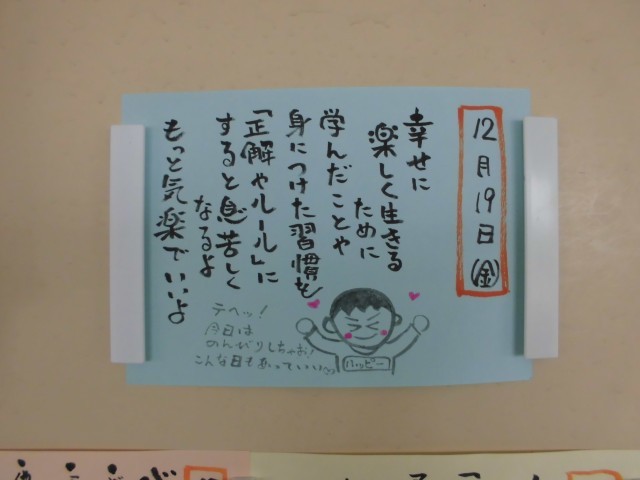 12月19日(金)
幸せに
楽しく生きる
ために
学んだことや
身につけた習慣を
「正解やルール」に
すると息苦しく
なるよ
もっと気楽でいいよ
テヘッ!
今日は
のんびりしちゃお!
こんな日もあっていい
ハッピー